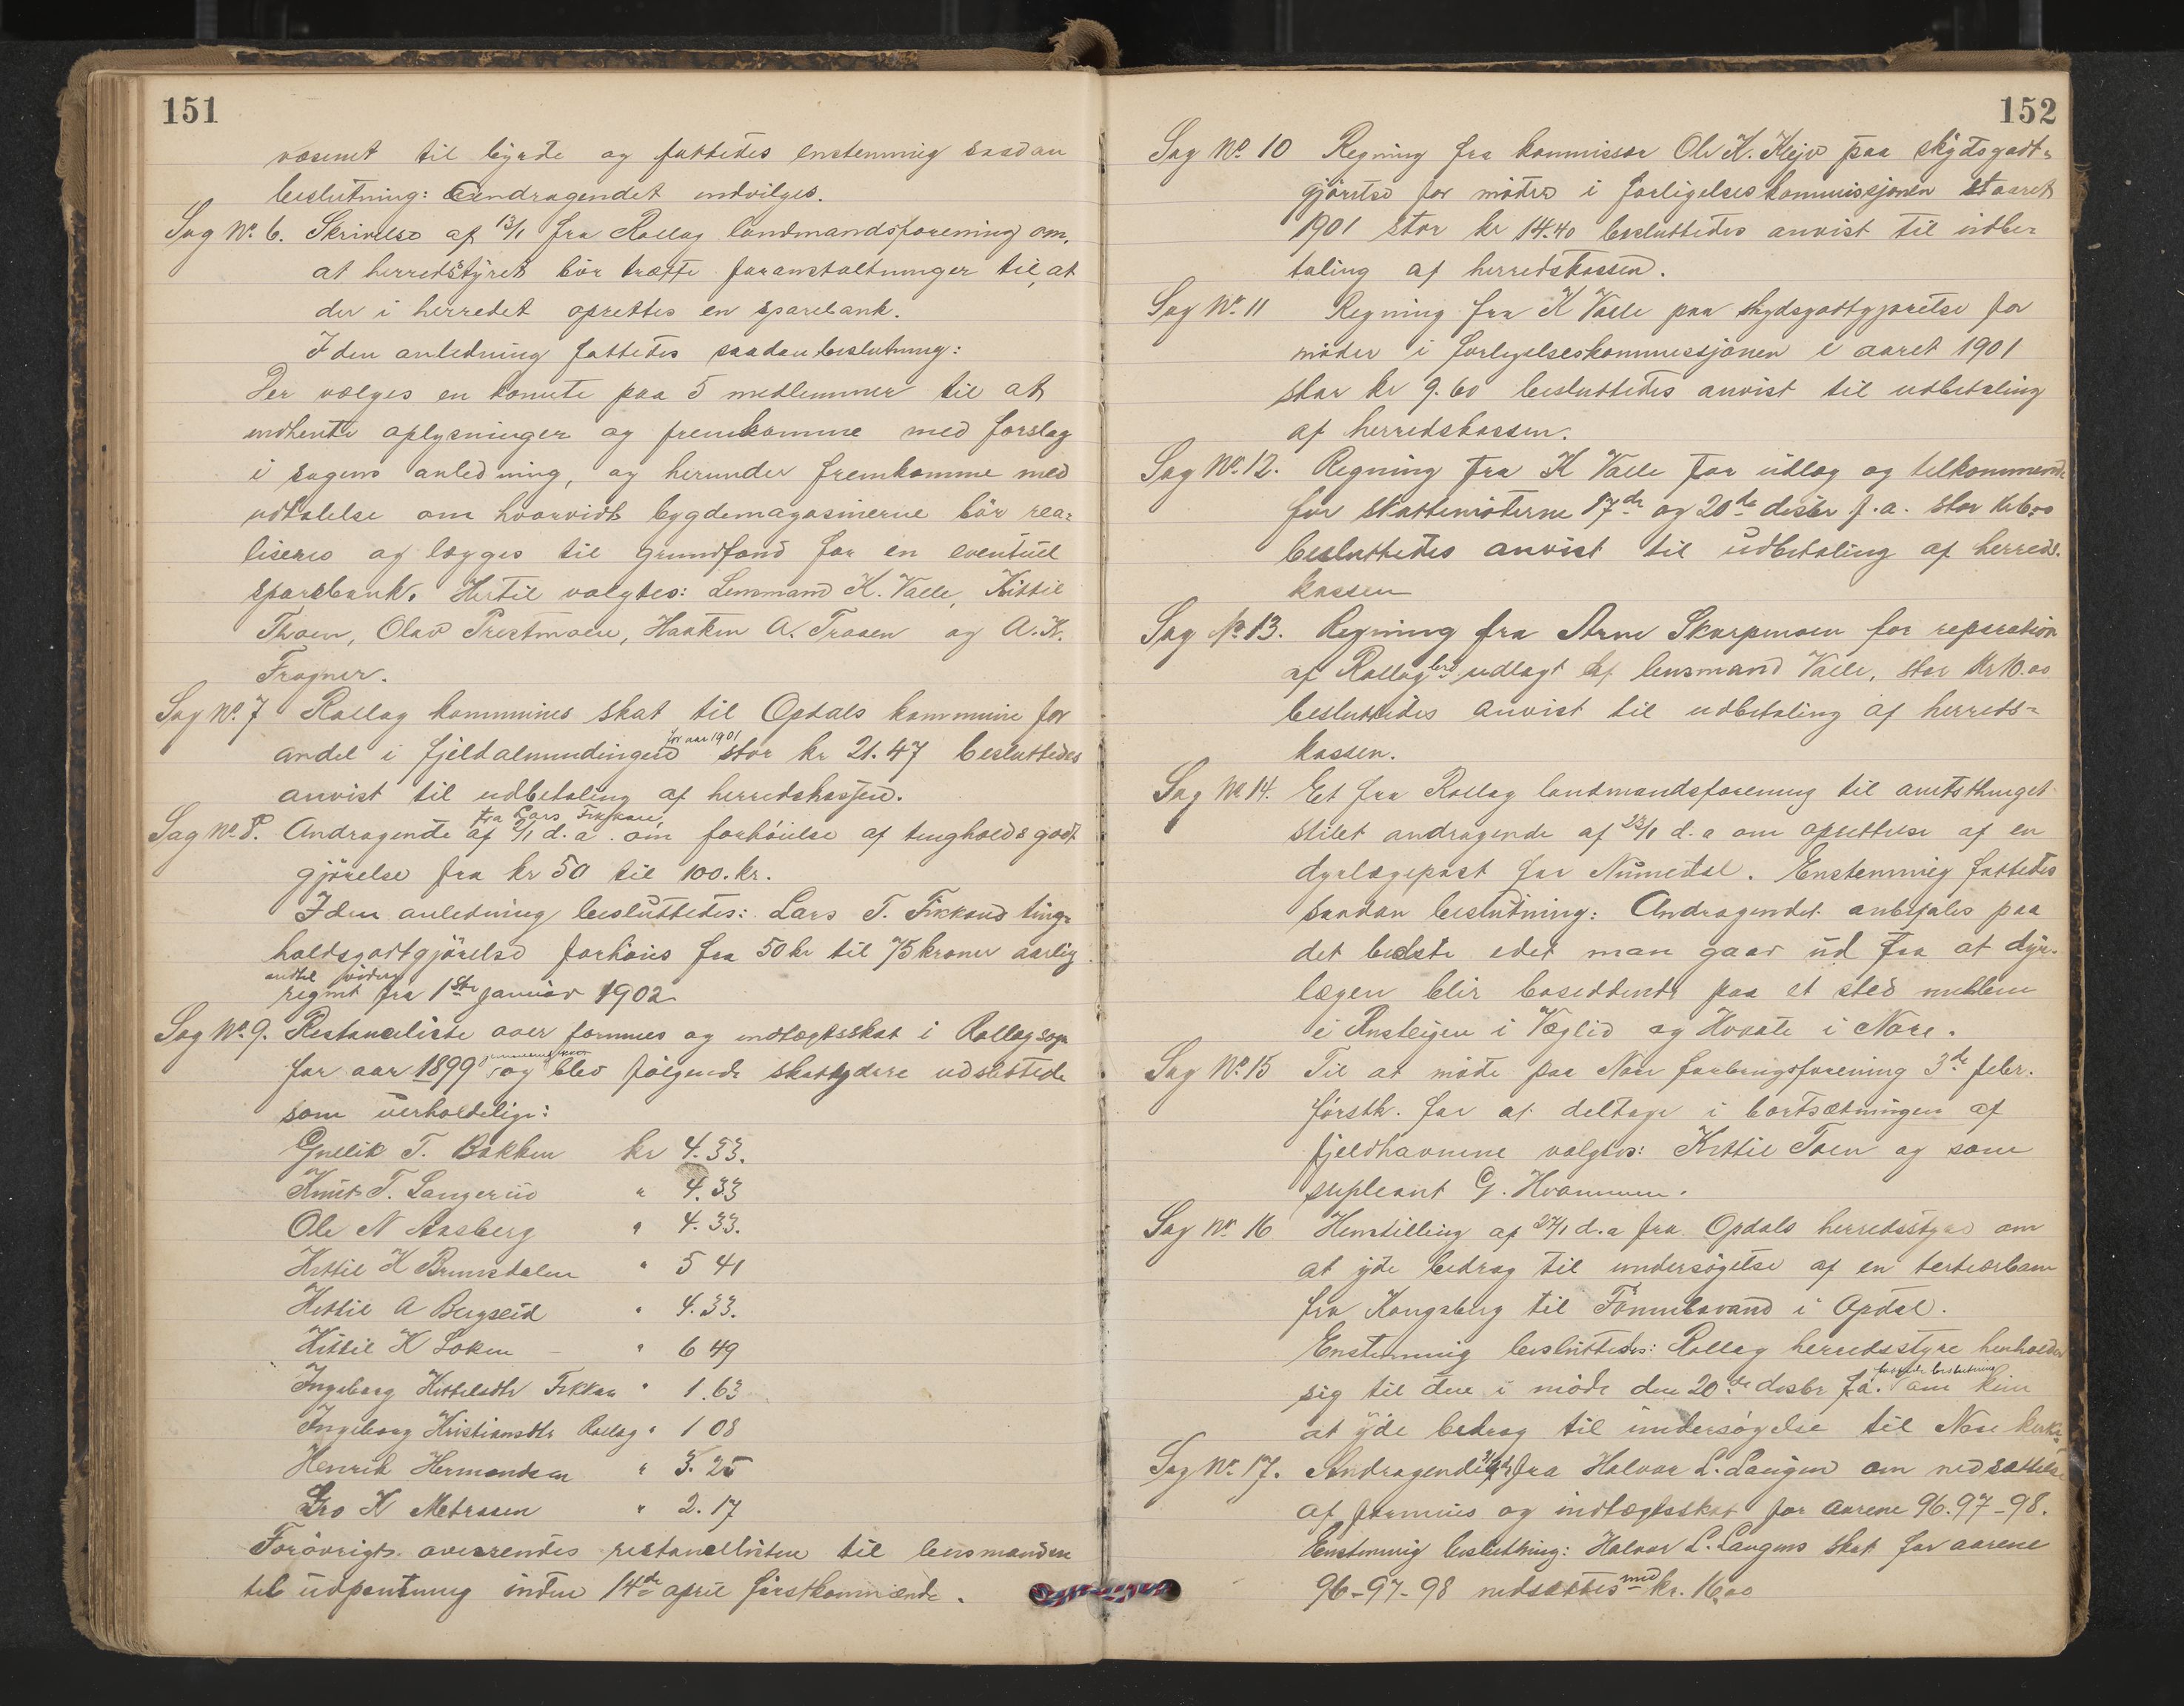 151
væsenet til byrde og fattedes enstemmig saadan
beslutning: Andragendet indvilges.
Sag No. 6. Skrivelse af 13/1 fra Rollag landmandsforening om,
at herredstyret bör træffe foranstaltninger til, at
der i herredet oprettes en sparebank.
I den anledning fattedes saadan beslutning:
Der vælges en komite paa 5 medlemmer til at
indhente oplysninger og fremkomme med forslag
i sagens anledning, og herunder fremkomme med
udtalelse om hvorvidt bygdemagasinerne bör rea-
liseres og lægges til grundfond for en eventuel
sparebank. Hertil valgtes: Lensmand K. Valle, Kittil
Thoen, Olav Prestmoen, Haaken A. Traaen og A. K.
Fragner.
Sag No. 7 Rollag kommunes skat til Opdals kommune for
andel i fjeldalmindingen for aar 1901 stor kr 21.47 besluttedes
anvist til udbetaling af herredskassen.
Sag No. 8. Andragende fra Lars Fikkan af 6/1 d. a. om forhöielse af tingholdsgodt
gjörelse fra kr 50 til 100. kr.
I den anledning besluttedes: Lars T. Fikkans ting-
holdsgodtgjörelse forhöies fra 50 kr til 75 kroner aarlig
indtil videre
regnet fra 1ste januar 1902
Sag No. 9. Restanceliste over formues og indtægtsskat i Rollag sogn
for aar 1899 og blev fölgende skatydere udslettede
som uerholdelige:
Gullik T. Bakken kr 4.33.
Knut T. Langerud " 4.33
Ole N Aasberg " 4.33.
Kittil K Brunsdalen " 5 41
Kittil A Bergseid " 4.33.
Kittil K Loken " 6 49
Ingeborg Kittelsdtr Fikkan " 1.63
Ingeborg Kristiansdtr Rollag " 1 08
Henrik Hermandsen " 3.25
Gro K Metraaen " 2.17
Forövrigt oversendes restancelisten til lensmanden
til udpantning inden 14de april förstkommende.
152
Sag No. 10 Regning fra kommissær Ole K. Kjejo paa skydsgodt-
gjörelse for möder i forligelseskommissjonen i aaret
1901 stor kr 14.40 besluttedes anvist til udbe-
taling af herredskassen.
Sag No. 11 Regning fra K Valle paa skydsgodtgjörelse for
möder i forligelseskommissjonen i aaret 1901
stor kr 9.60 besluttedes anvist til udbetaling
af herredskassen.
Sag No. 12. Regning fra K Valle for udlæg og tilkommende
for skattemöterne 17de og 20de desbr f. a. stor kr 6.00
besluttedes anvist til udbetaling af herreds-
kassen
Sag No 13. Regning fra Arne Skarpmoen for reparation
af Rollag bro udlagt af lensmand Valle, stor kr 10.00
besluttedes anvist til udbetaling af herreds-
kassen.
Sag No 14. Et fra Rollag landmandsforening til amtsthinget
stilet andragende af 23/1 d. a om oprettelse af en
dyrlægepost for Numedal. Enstemmig fattedes
saadan beslutning: Andragendet anbefales paa
det bedste idet man gaar ud fra at dyr-
lægen blir bosiddende paa et sted mellem
i Rusteigen i Væglid og Hvaale i Nore.
Sag No. 15 Til at möde paa Nore forbrugsforening 3de febr.
förstk. for at deltage i bortsætningen af
fjeldhavnene valgtes: Kittil Toen og som
supleant G. Hvammen.
Sag No. 16 Henstilling af 27/1 d. a fra Opdals herredsstyre om
at yde bidrag til undersögelse af en tertiærbane
fra Kongsberg til Fönnebovand i Opdal.
Enstemmig besluttedes: Rollag herredsstyre henholder
sig til den i möde den 20de desbr f a. fattede beslutning om kun
at yde bidrag til undersögelse til Nore kirke.
Sag No. 17. Andragende fra Halvor L. Laugen om nedsættelse
af formues og indtægtsskat for aarene 96.97-98.
Enstemmig beslutning: Halvor L. Laugens skat for aarene
96-97-98 nedsættes med kr. 16.00